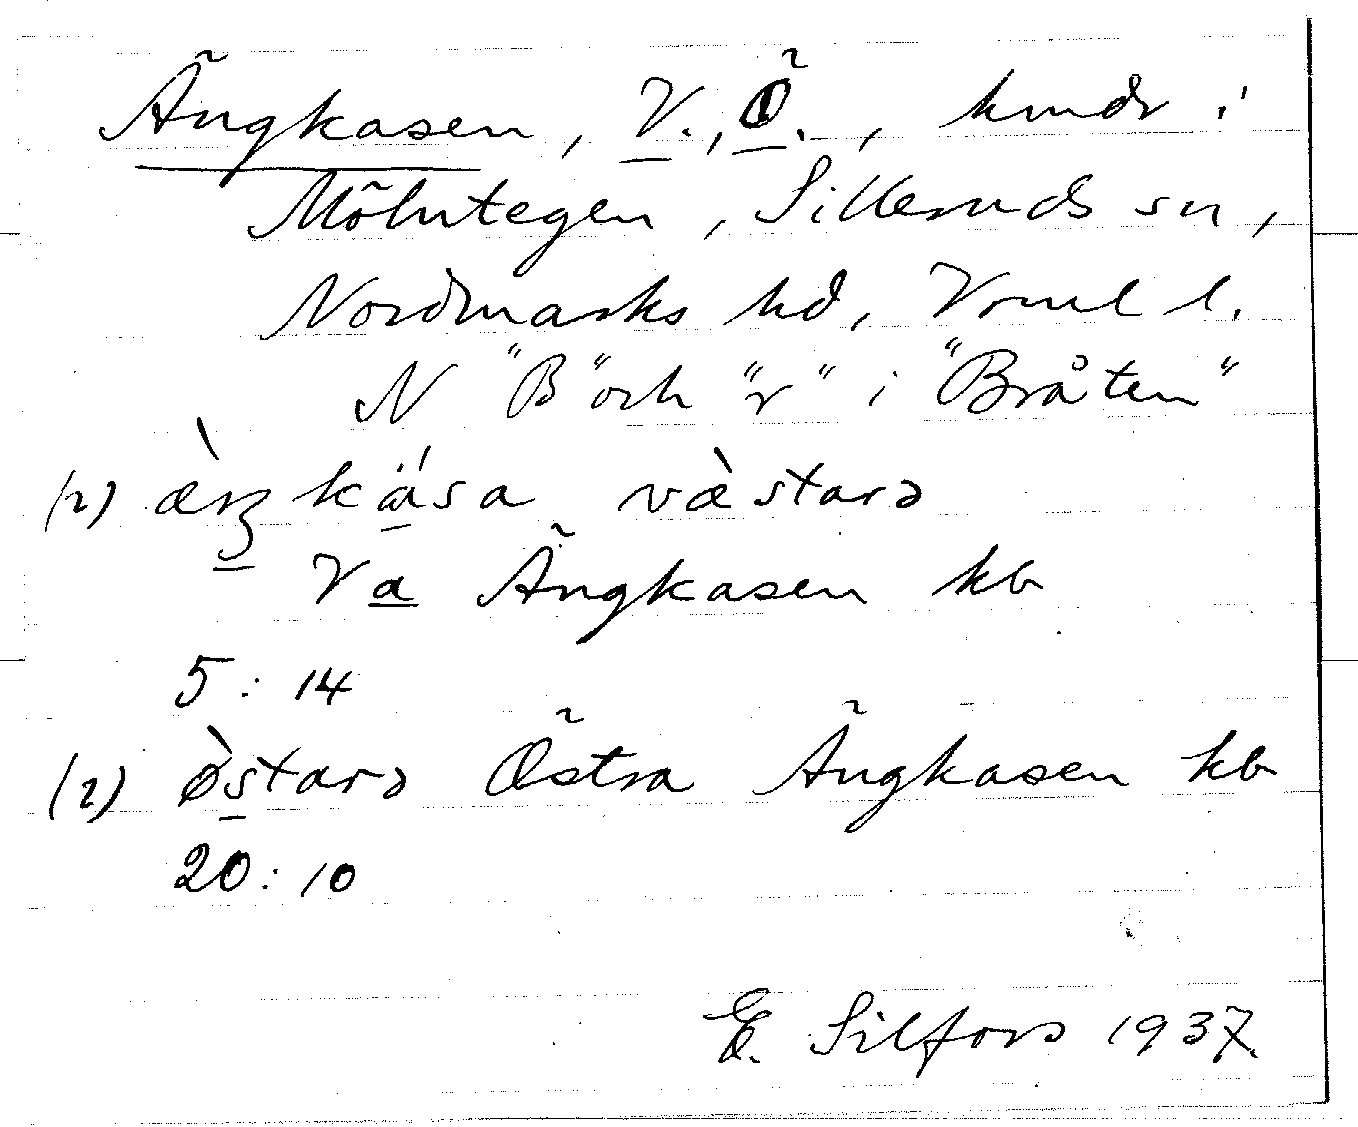 Ängkasen, V., Ö., hmdr i
Mölntegen, Silleruds sn,
Nordmarks hd, Vrml l.
N "B" och "r" i "Bråten"
(2) æ̀ŋkä́sa væ̀starə
Va Ängkasen kb
5:14
(2) ø̀starə Östra Ängkasen kb
20:10
E. Silfors 1937.